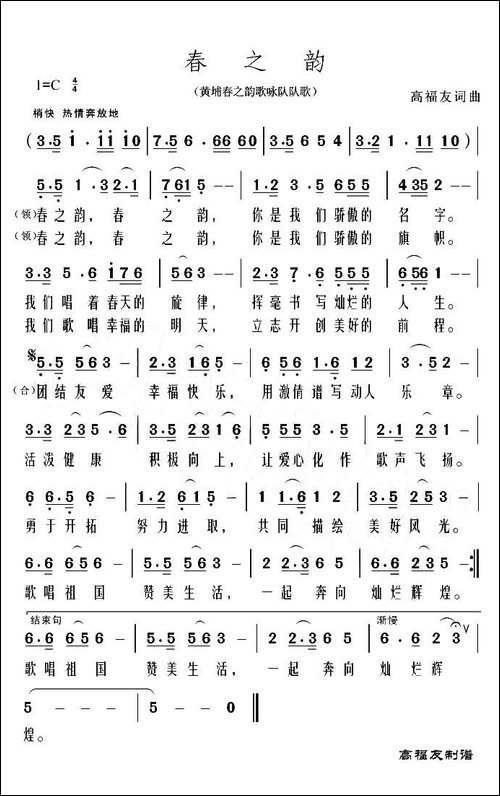 春之韵
(黄埔春之韵歌咏队队歌)
1=C 4/4
高福友词曲
稍快 热情奔放地
(3·5 1· 11 10 | 7·5 6· 66 60 | 3·5 6 5 4· | 3·5 11 10 )|
5·5 1·3 2·1 | 7 61 5 - - | 1·2 3 3·5 55 | 4 35 2 - - |
(领)春之韵, 春 之 韵, 你是我们骄傲的 名 字。
(领)春之韵, 春 之 韵, 你是我们骄傲的 旗 帜。
3·3 5·6 1 76 | 563 - - | 2·3 7·6 55 | 6 561 - - |
我们唱着春天的 旋律, 挥毫书写灿烂的 人生。
我们歌唱幸福的 明天, 立志开创美好的 前程。
5·5 563 - | 2·3 165 - | 6 656 1·6 12 | 3·2 35 2 - |
(合)团结友爱 幸福快乐, 用激情谱写动人 乐章。
3·3 235·6 | 3·5 235 6 | 5 55 3·5 | 2·1 231 - |
活泼健康 积极向上, 让爱心化作 歌声飞扬。
6 6·5 6 | 1·2 612 - | 1 1·6 1 2 | 3·2 535 - |
勇于开拓 努力进取, 共同描绘 美好风光。
6·6 656 - | 3·2 523 - | 2 2·3 65 | 6·6 235 - :|
歌唱祖国 赞美生活, 一起奔向 灿烂辉煌。
结束句
渐慢
6·6 656 - | 3·2 523 - | 2 2·3 65 | 6·6 2 3 V
歌唱祖国 赞美生活, 一起奔向 灿烂辉
5 - - - | 5 - - 0 ‖
煌。
高福友制谱